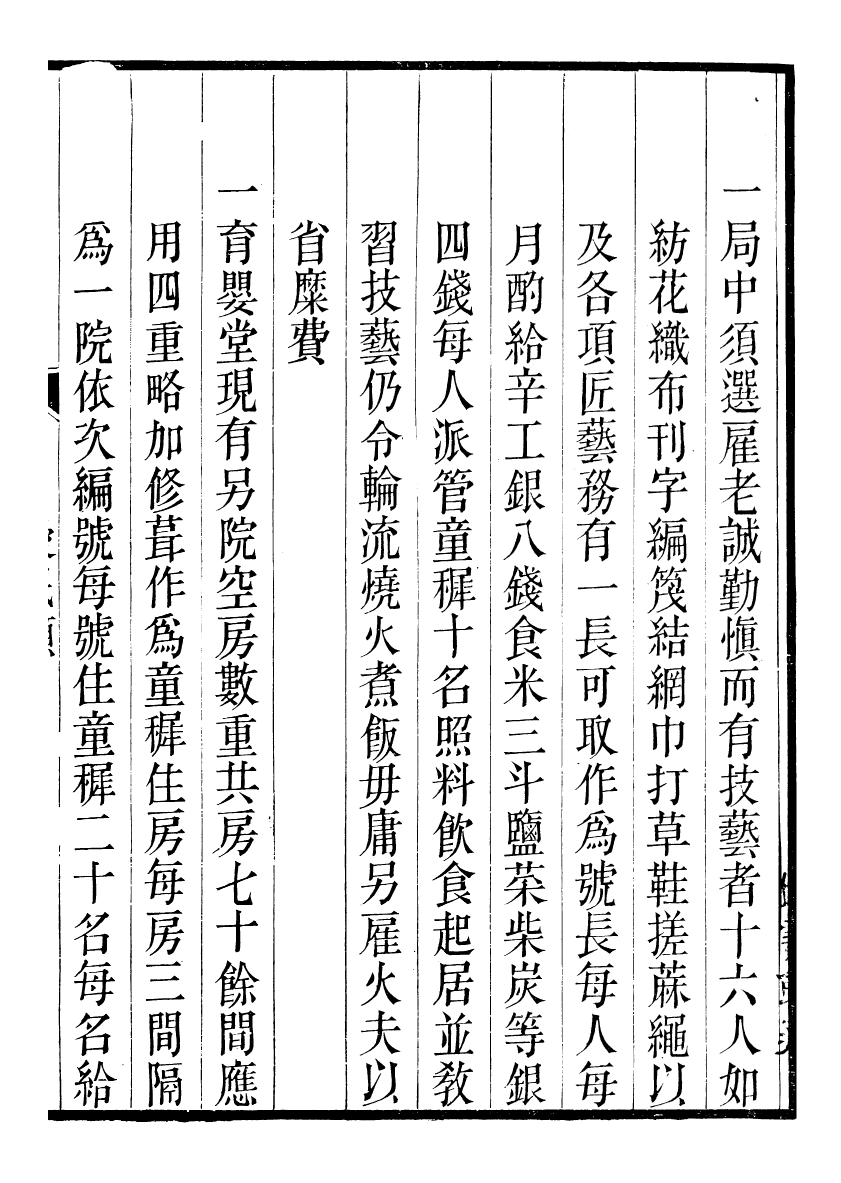 一局中須選雇老誠勤愼而有技藝者十六人如
紡花織布刊字編篾結網巾打草鞋搓蔴繩以
及各項匠藝務有一長可取作爲號長每人每
月酌給辛工銀八錢食米三斗鹽菜柴炭等銀
四錢每人派管童穉十名照料飮食起居並敎
習技藝仍令輪流燒火煮飯毋庸另雇火夫以
省糜費
一育嬰堂現有另院空房數重共房七十餘間應
用四重略加修葺作爲童穉住房每房三間隔
爲一院依次編號每號住童穉二十名每名給